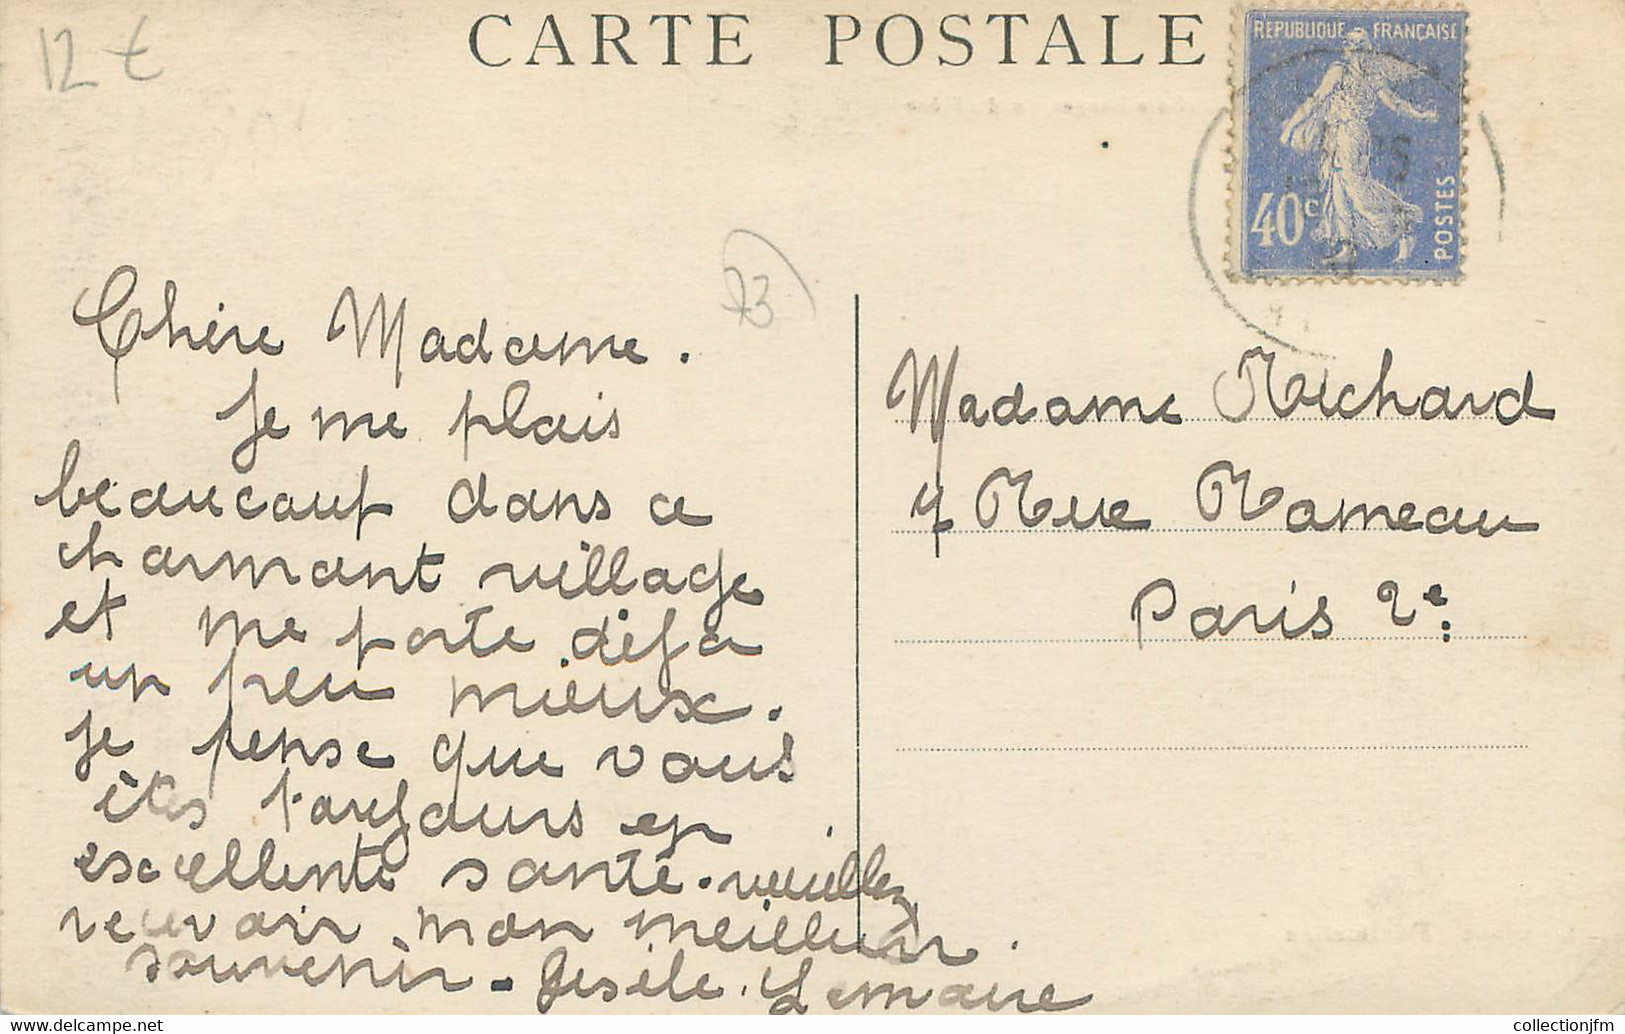 12 €
CARTE POSTALE
REPUBLIQUE FRANÇAISE
40c
POSTES
73
Chère Madame.
Je me plais
beaucoup dans ce
charmant village
et me porte déjà
un peu mieux.
Je pense que vous
êtes toujours en
excellente santé. veuillez
recevoir mon meilleur
souvenir - Gisèle. Lemaire
Madame Richard
4 Rue Rameau
Paris 2e.
collectionjfm